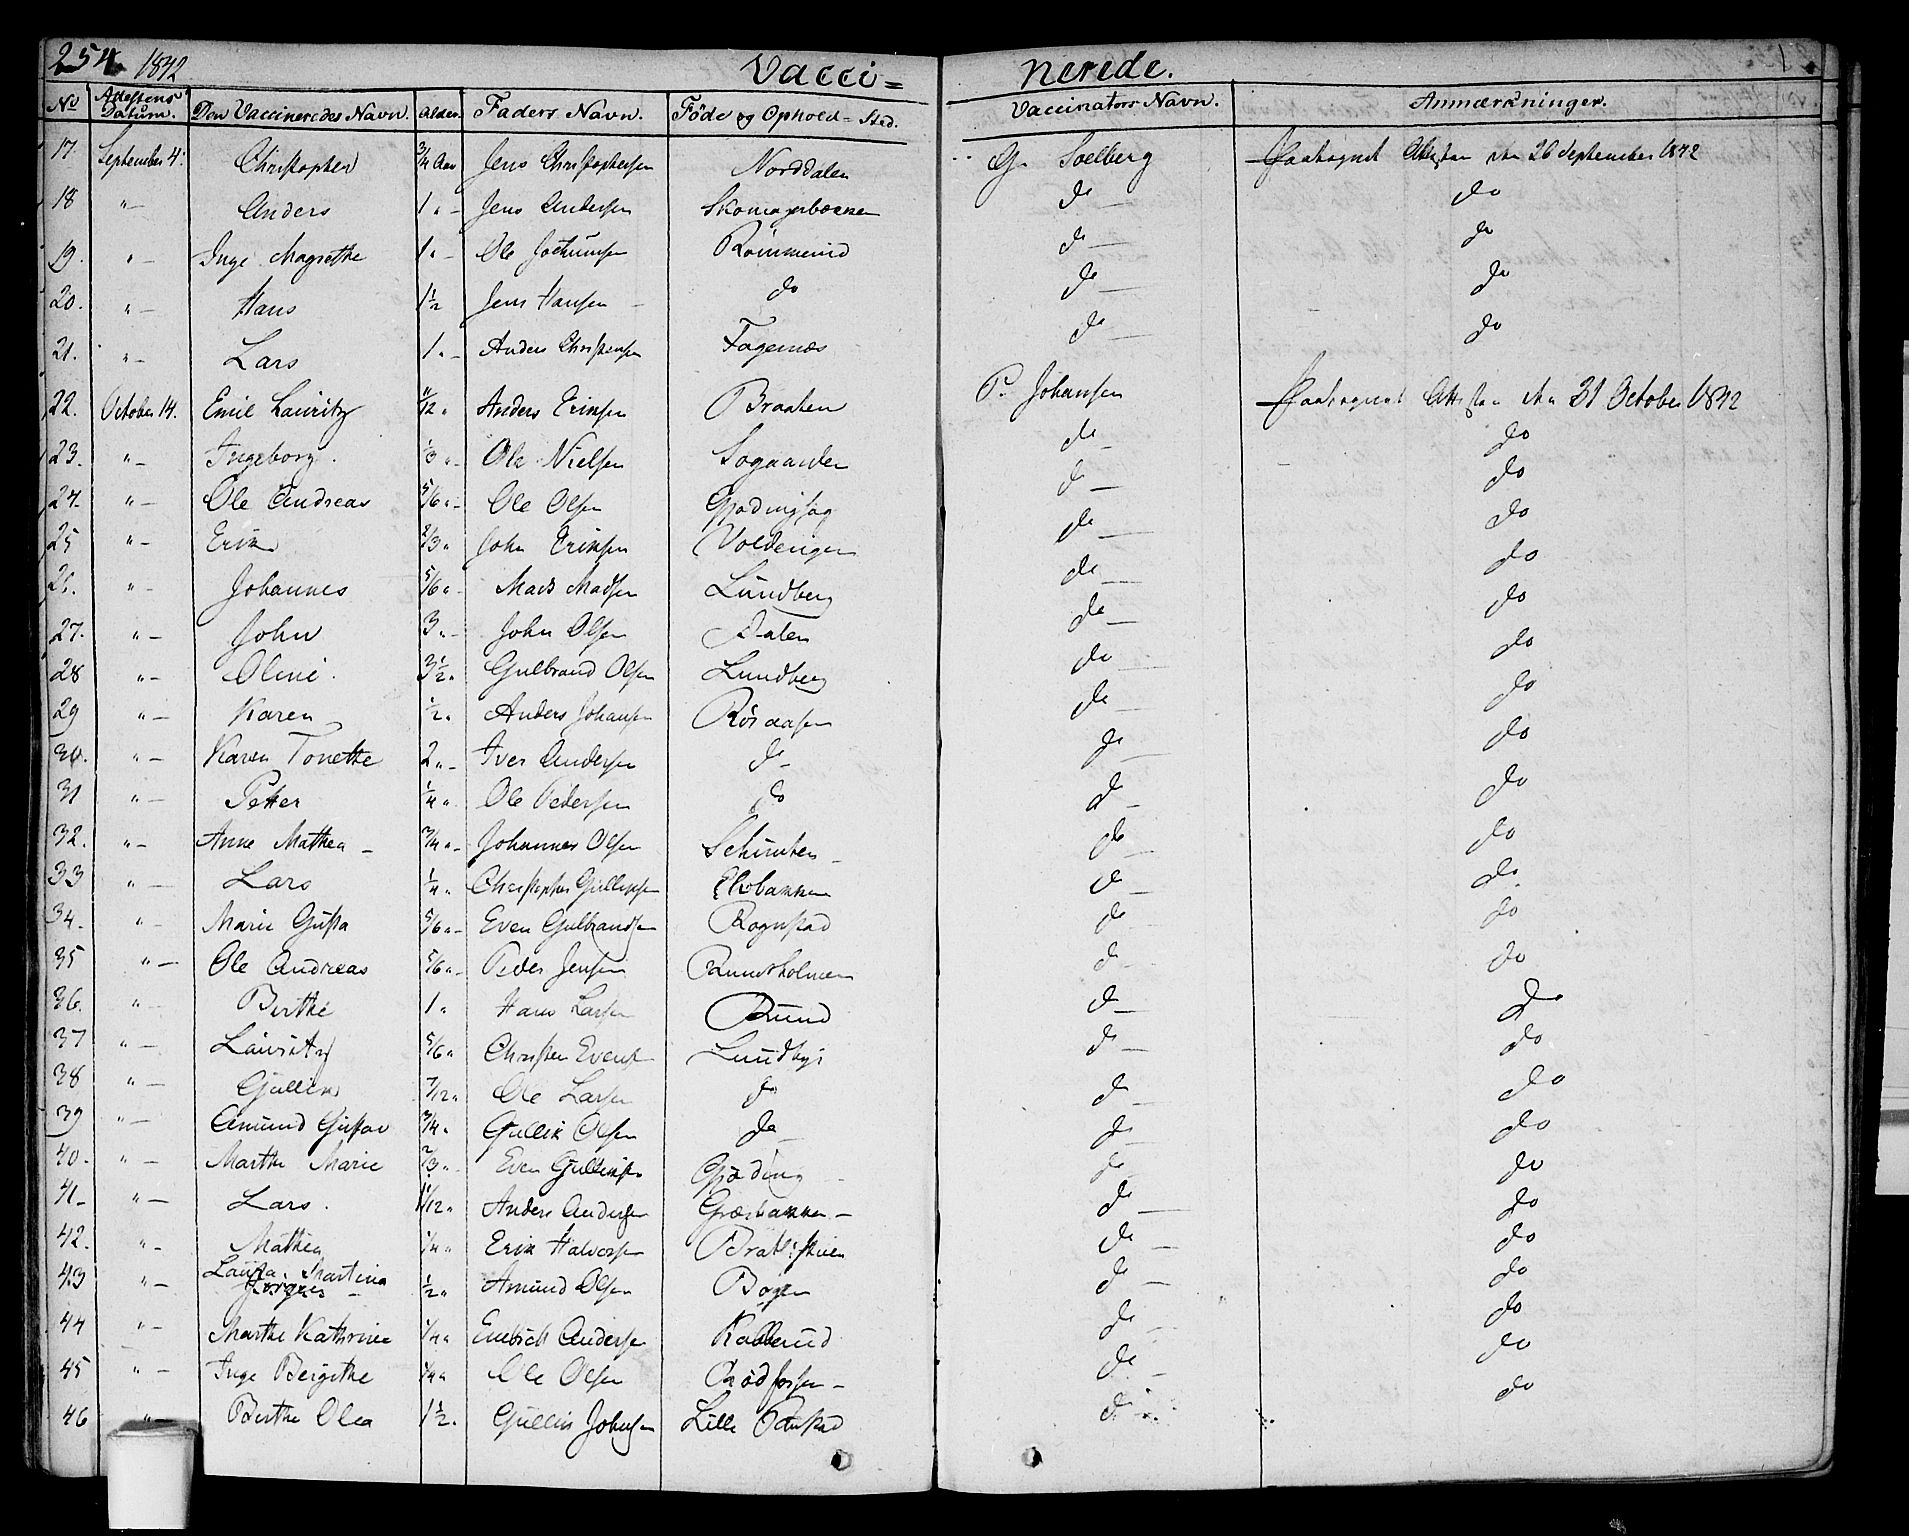 254 1842 Vacci= nerede.
No Attestens Datum. Den Vaccineredes Navn. Alder. Faders Navn. Föde og Ophold-Sted. Vaccinators Navn. Anmærkninger.
17. September 4. Christopher 3/4 Aar Jens Christophersen Norddalen G. Soelberg Paategnet Attesten den 26 September 1842
18 " — Anders 1 " — Jens Andersen Skomagerbakken do — do
19. " — Inge Magrethe 1 " — Ole Jochumsen Römmerud do — do
20. " — Hans 1 1/2 Jens Hansen — do do — do
21. " — Lars 1 " — Anders Christensen Fagernæs do — do
22. October 14. Emil Lauritz 11/12 " Anders Eriksen Braaten P. Johansen Paategnet Attesten den 31 October 1842
23. " — Ingeborg. 1/3 " — Ole Nielsen Sogaarden do — do
24. " — Ole Andreas 5/6 " — Ole Olsen do — do
25 " — Erik 2/3 " John Eriksen Voldengen do — do
26. " — Johannes 5/6 " — Mads Madsen Lundberg do — do
27. " — John 3 " — John Olsen Dalen do — do
28 " — Oline 3 1/2 " Gulbrand Olsen Lundberg do — do
29 " — Karen 1/2 " Anders Johansen Rösaasen do — do
30. " — Karen Tonette 2 " — Iver Andersen do — do — do
31 " — Petter 1/4 " Ole Pedersen do do — do
32. " — Anne Mathea — 3/4 " — Johannes Olsen do — do
33 " — Lars 1/4 " Christopher Gulliksen Elvbakken do — do
34. " — Marie Gusta 5/6 " — Even Gulbrandsen Rognstad do — do
35 " — Ole Andreas 5/6 " — Peder Jensen Rundsholmen do — do
36. " — Berthe 1 " Hans Larsen Rund do — do
37 " — Lauritz 5/6 " Christen Evens. Lundbye do — do
38 " — Gullik 7/12 " Ole Larsen do do — do
39 " — Amund Gustav 3/4 " Gullik Olsen do — do — do
40. " — Marthe Marie 2/3 " Even Gulliksen Gjæding do do
41 — " — Lars. 11/12 " Anders Andersen Græsbakken — do — do
42. " — Mathea 1/4 " Erik Halvorsen do — do
43 " — Laura Martina Jörgine — 1/2 " Amund Olsen Bogen do — do
44 " — Marthe Kathrine 1/4 " Embrick Andersen Kalberud do — do
45 " — Inge Bergithe 1/4 " Ole Olsen Rödfossen — do — do
46 " — Berthe Olea 1 1/2 " Gullik Johnsen Lille Ramstad do — do